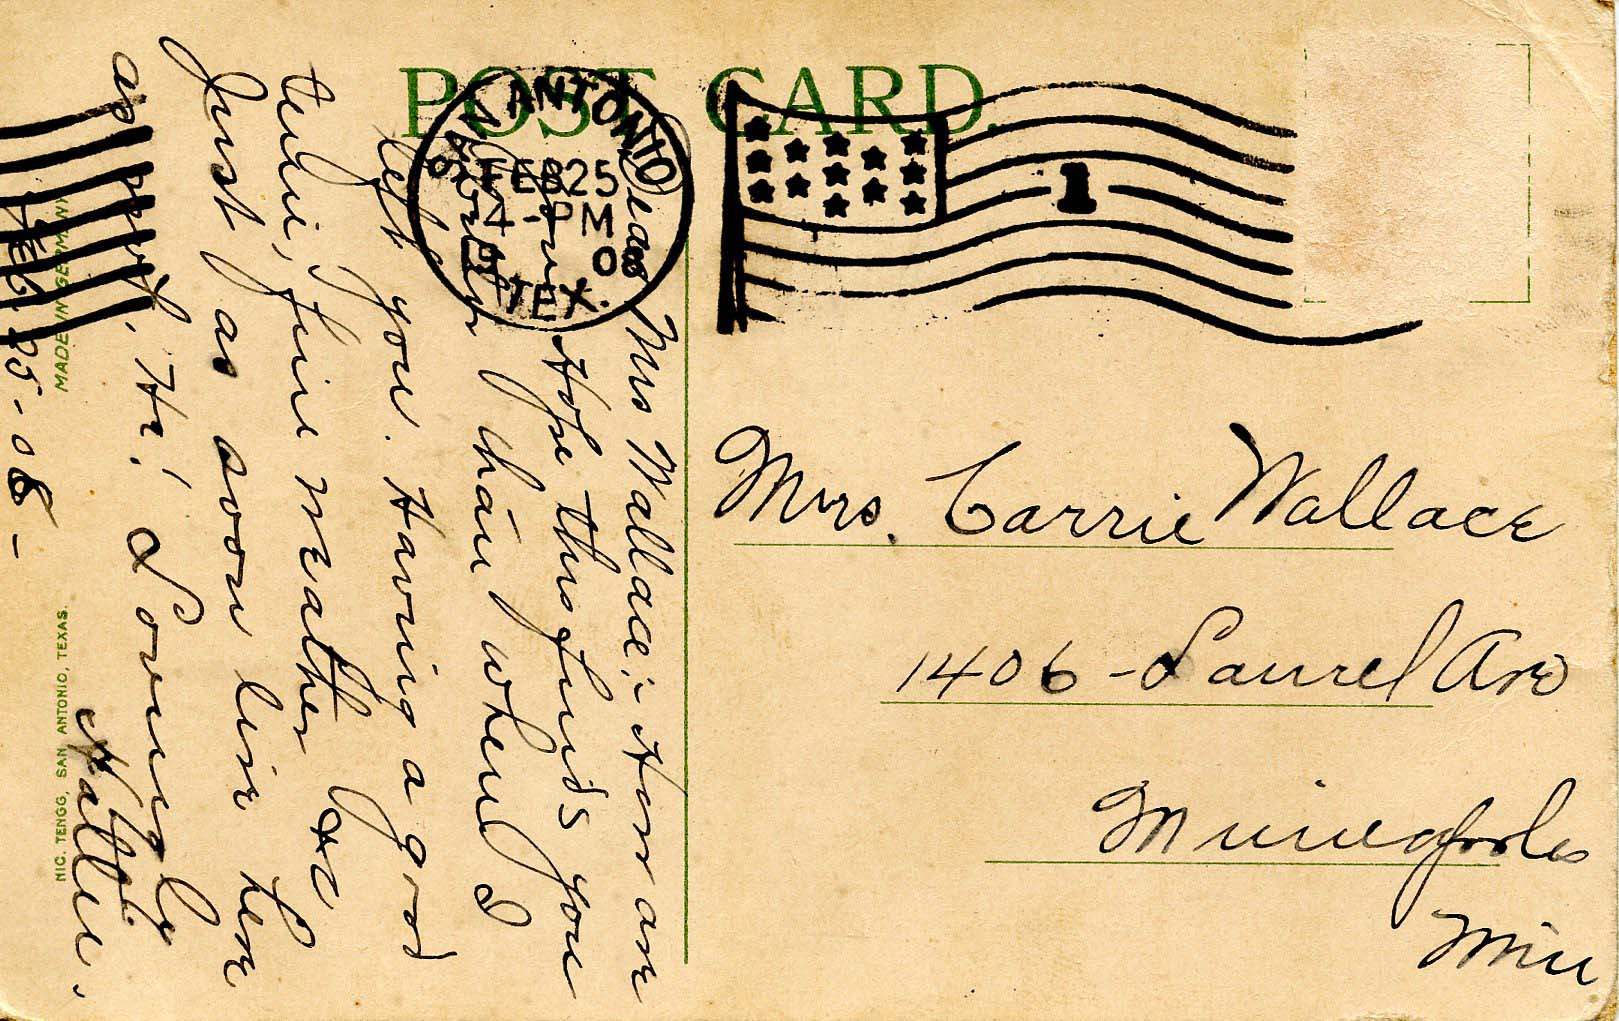 POST CARD.
SAN ANTONIO,
FEB 25
4 - PM
TEX.
1
Mrs. Carrie Wallace
1406 - Laurel Ave
Minneapolis
Minn
Dear Mrs Wallace: How are
you. Hope this finds you
stronger than when I
left you. Having a good
time, fine weather &c
Just as soon live here
as not. Ha! Lovingly
Hattie.
Feb 25 - 08 -
MADE IN GERMANY.
NIC. TENGG, SAN ANTONIO, TEXAS.